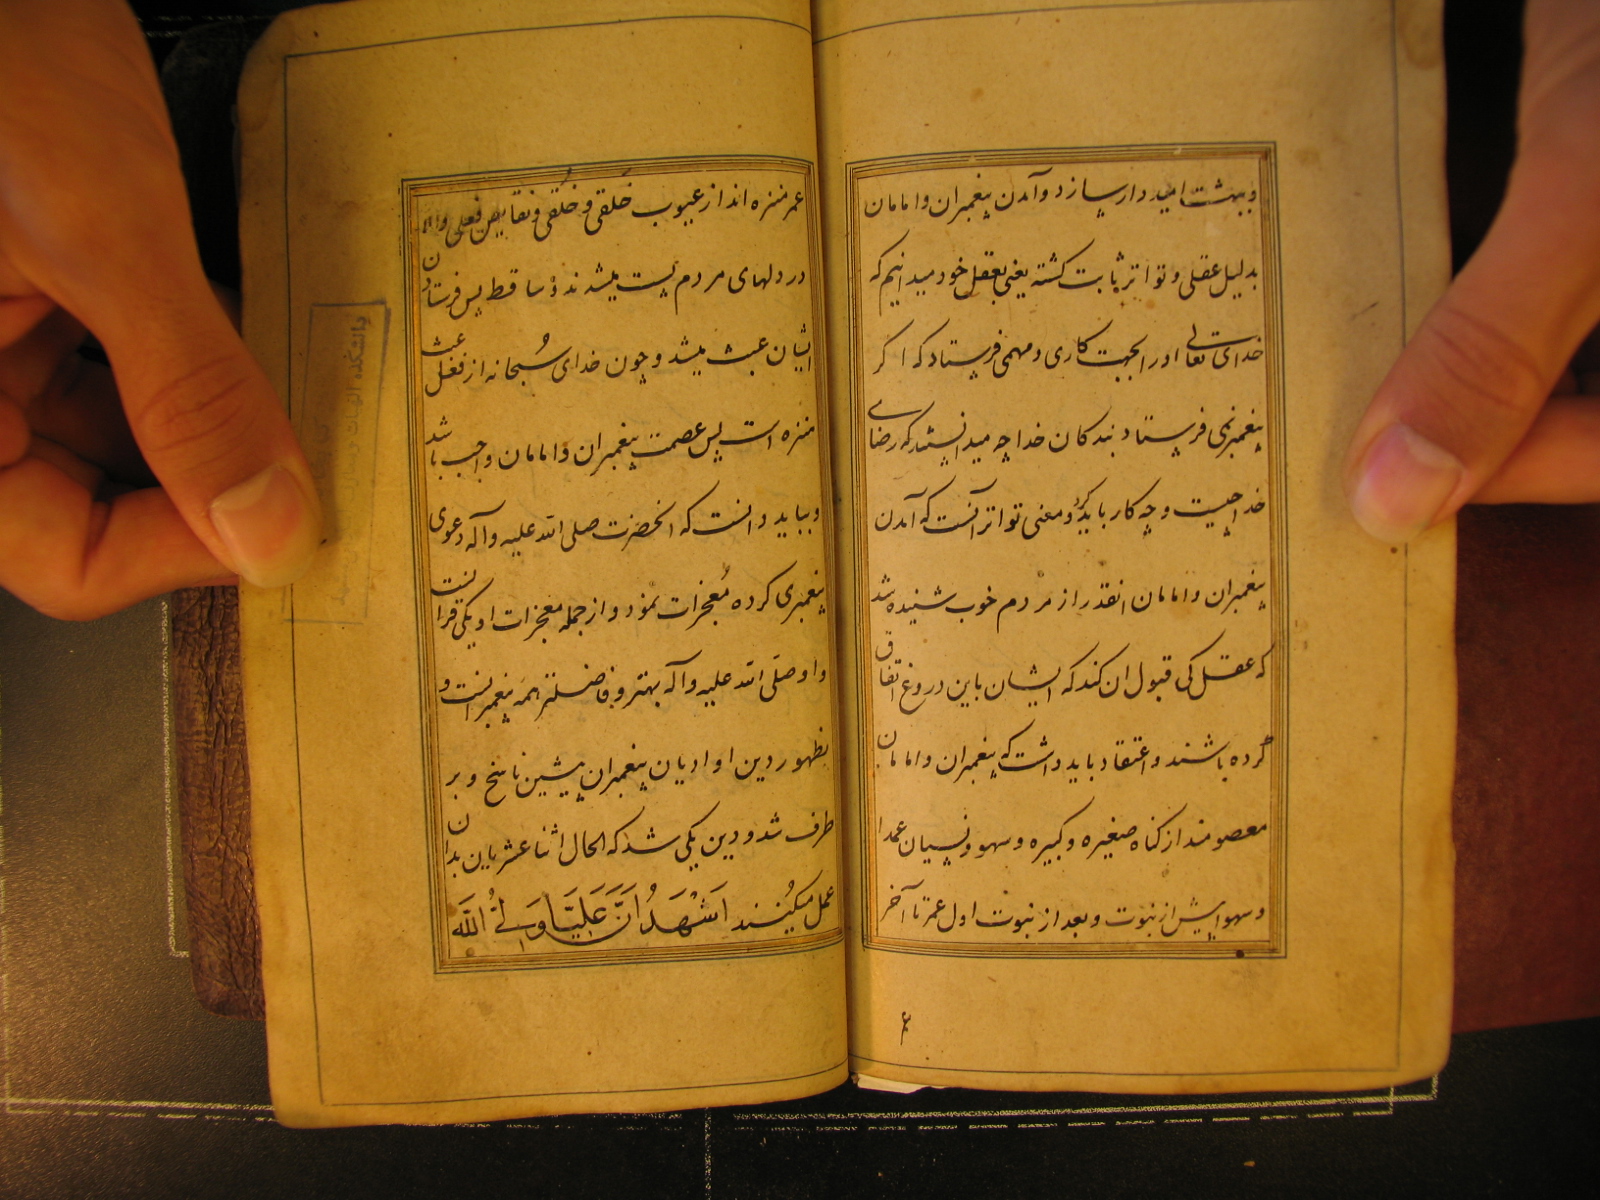 و ببهشت امیددار سازد و آمدن پیغمبران و امامان
بدلیل عقلی و تواتر ثابت کشته یعنی بعقل خود میدانیم که
خدای تعالی اور الجهت کاری و مهمی فرستاد که اکر
پیغمبر نمی فرستاد بندکان خدا چه میدانستند که رضای
خدا چیست و چه کار باید کرد و معنی تواتر آنست که آمدن
پیغمبران و امامان انقدر از مردم خوب شنیده شد
که عقل کی قبول ان کند که ایشان باین دروغ اتفاق
کرده باشند و اعتقاد باید داشت که پیغمبران و امامان
معصومند از کناه صغیره و کبیره و سهو و نسیان عمدا
و سهوا پیش از نبوت و بعد از نبوت اول عمر تا آخر
۴
عمر منزه اند از عیوب خَلقی و خُلقی و نقایص فعلی والا
در دلهای مردم پست میشدند و ساقط پس فرستادن
ایشان عبث میشد و چون خدای سُبحانه از فعل عبث
منزه است پس عصمت پیغمبران و امامان واجب باشد
و بباید دانست که انحضرت صلی الله علیه و آله دعوی
پیغمبری کرده مُعجزات نمود و از جمله معجزات او یکی قرانست
و او صلّی الله علیه و آله بهتر و فاضلتر همه پیغمبرانست و
بظهور دین او ادیان پیغمبران پیشین ناسخ و بر
طرف شد و دین یکی شد که الحال اثنا عشریان بدان
عمل میکنند اَشْهَدُ اَنَّ عَلِیَّاً وَلِیُّ اللَّه
دانشکده الهیات و معارف